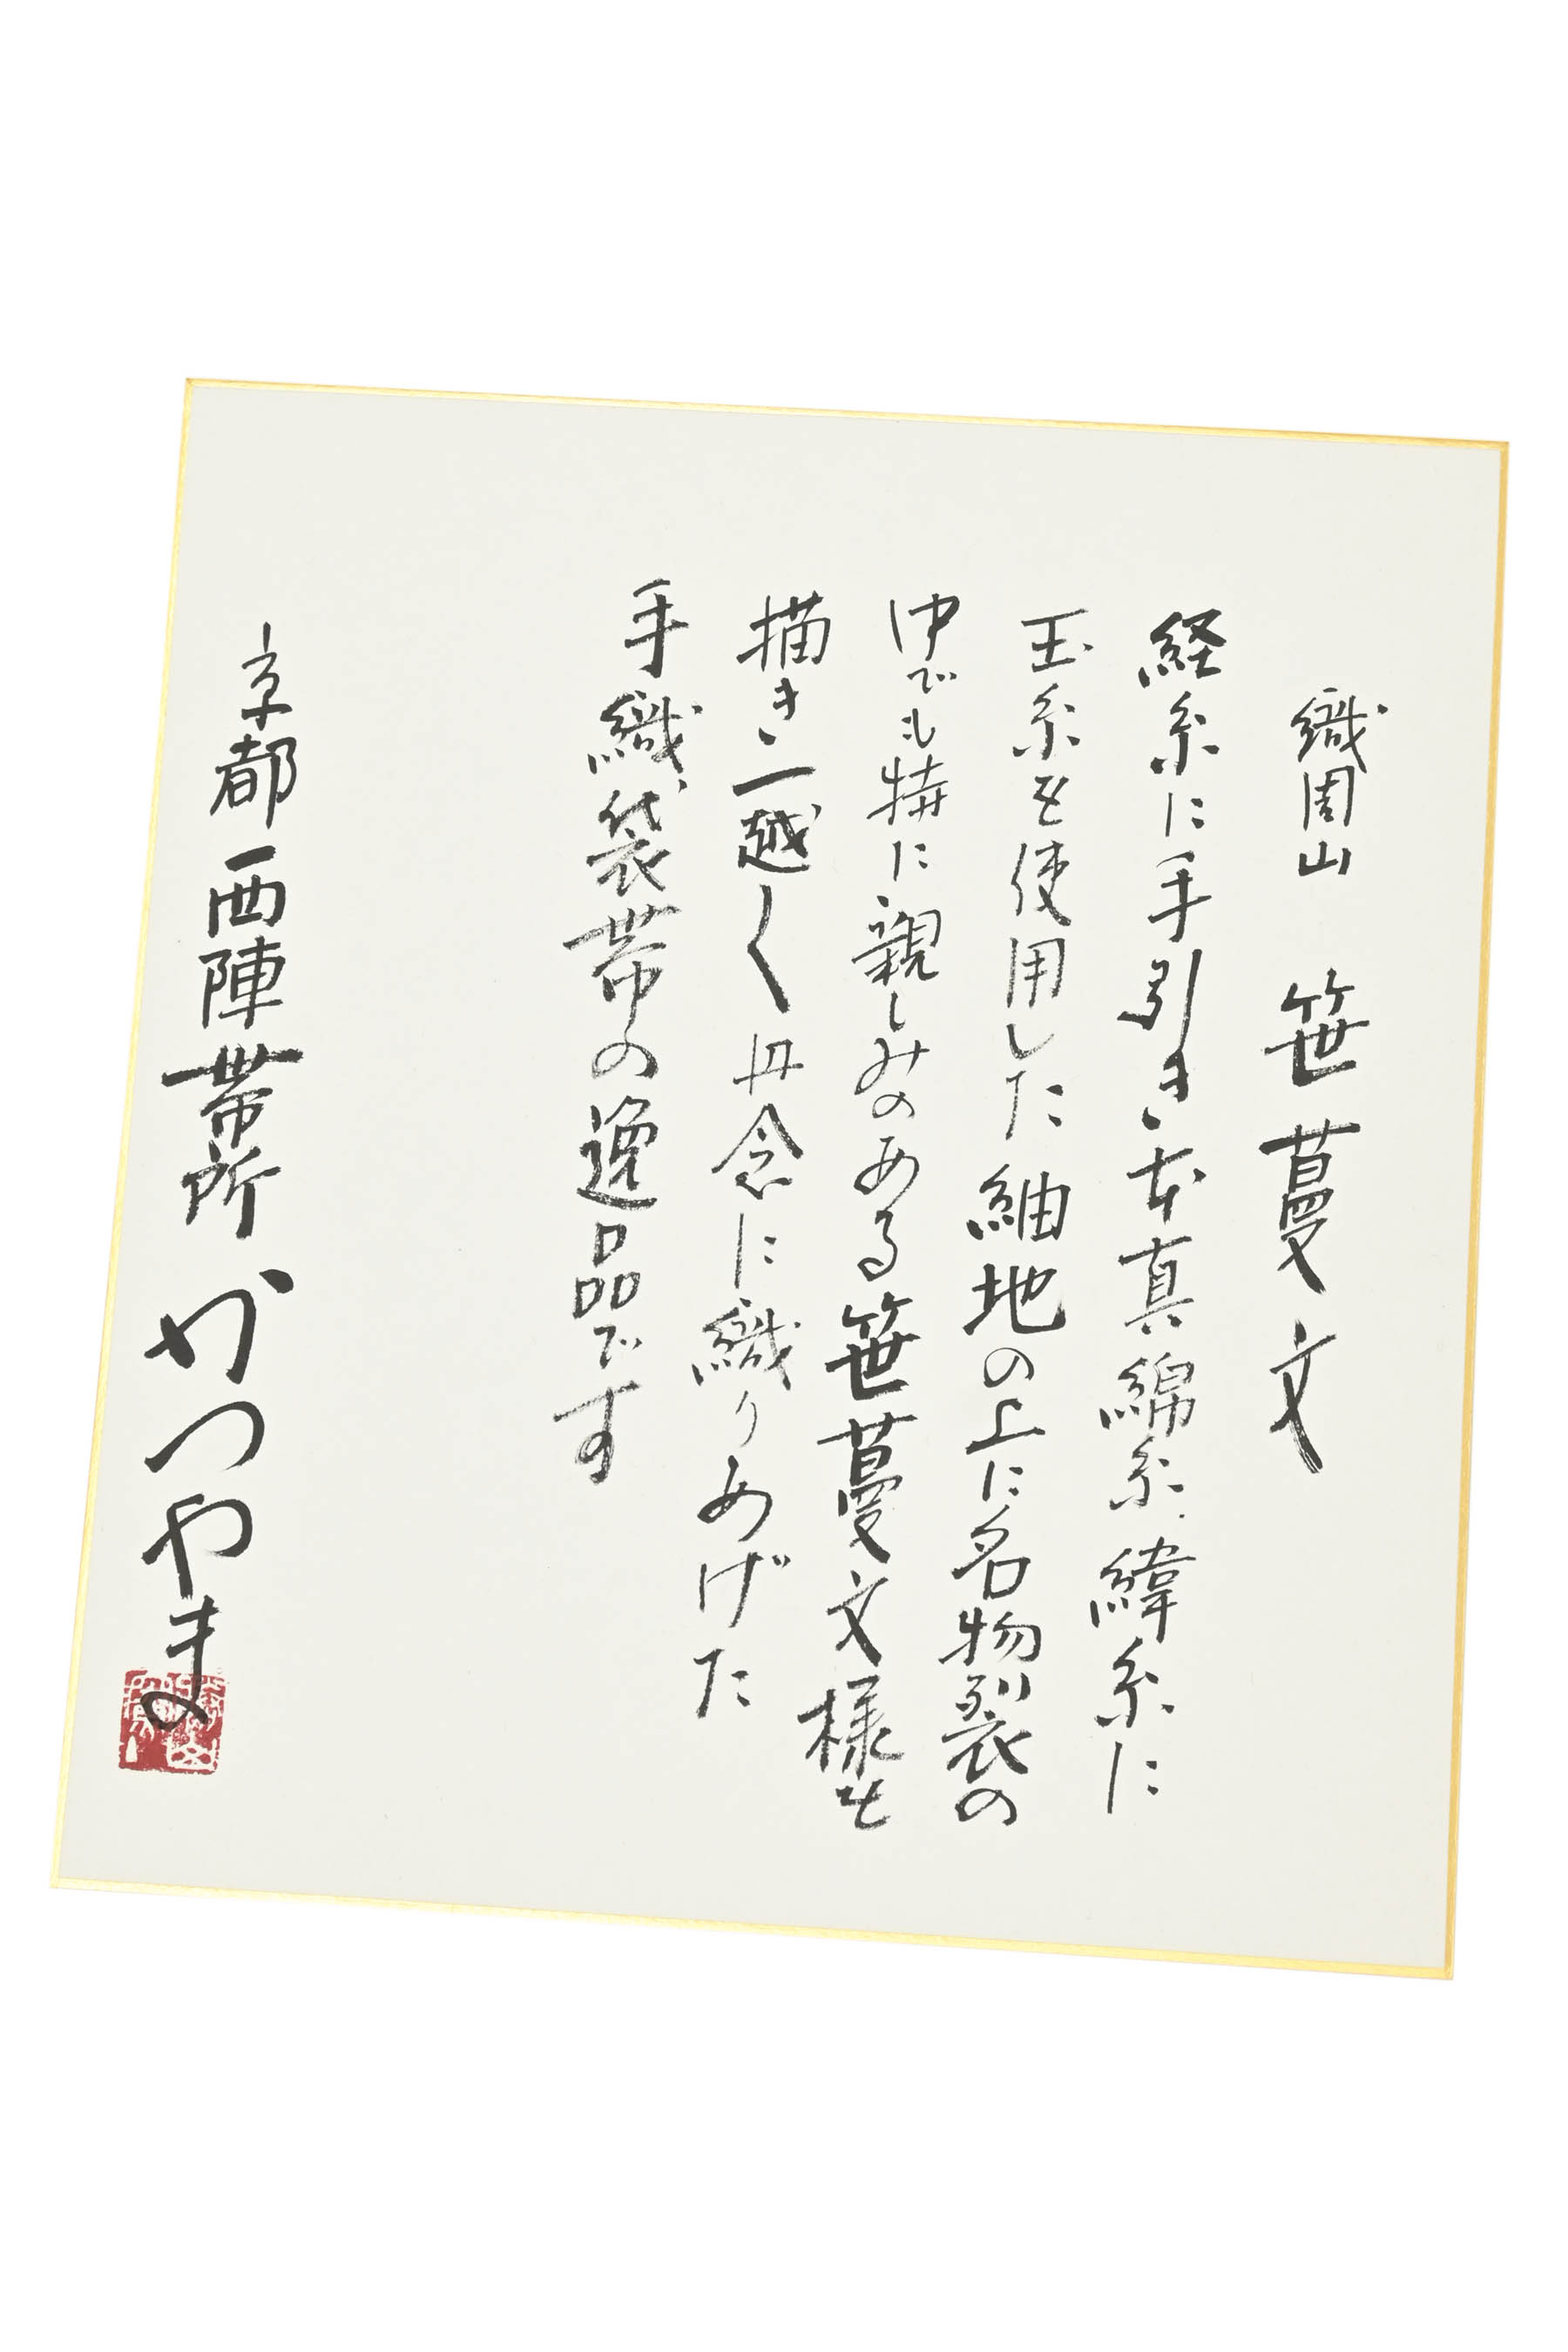 織岡山 笹蔓文
経糸に手引き本真綿糸、緯糸に
玉糸を使用した紬地の上に名物裂の
中でも特に親しみのある笹蔓文様を
描き一越〱丹念に織りあげた
手織袋帯の逸品です
京都西陣帯所かつやま